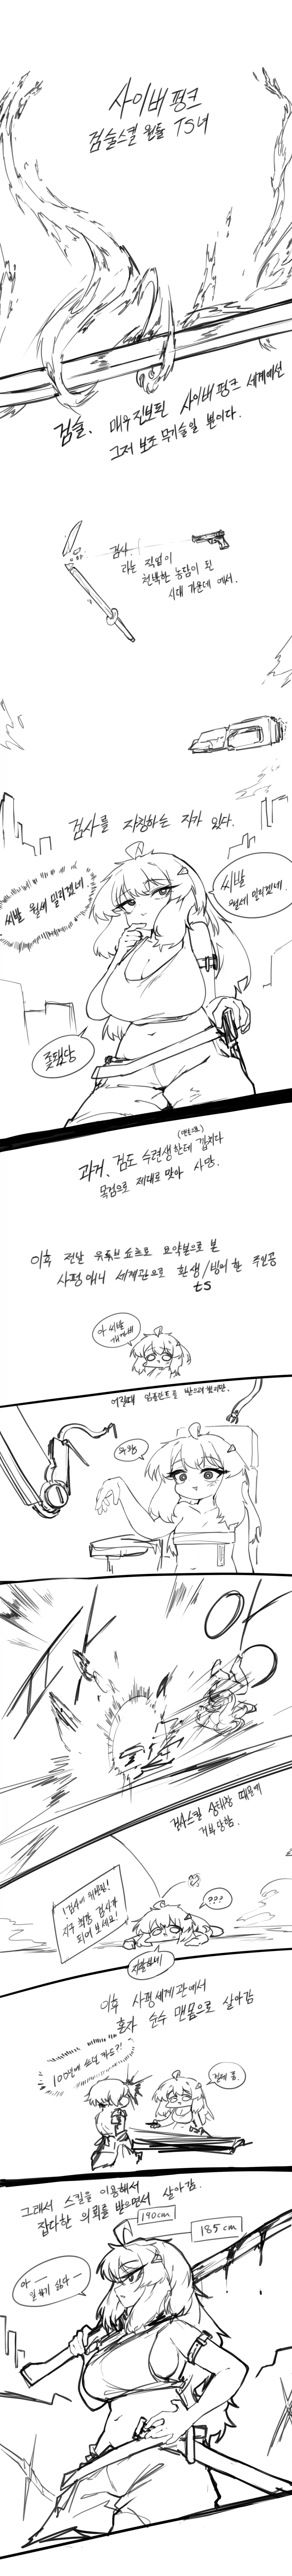 사이버펑크
검술스킬 원툴 TS녀
검술. 매우 진보된 사이버펑크 세계에선
그저 보조 무기술일 뿐이다.
검사.
라는 직업이
천박한 농담이 된
시대 가운데에서.
검사를 자칭하는 자가 있다.
씨발 월세 밀리겠네
씨발
월세 밀리겠네.
좆됐당
과거, 검도 수련생한테 깝치다
목검으로 제대로 맞아 사망.
이후 전날 유튜브 쇼츠로 요약본으로 본
사펑 애니 세계관으로 환생/빙의한 주인공
ts
아 씨발
어릴때 임플란트를 받으려 했지만.
우왕
검사스킬 상태창 때문에
거부당함.
!검사의 위협됨!
최강 검사가
되어 보세요!
???
이후 사펑세계관에서
혼자 순수 맨몸으로 살아감
그래서 스킬을 이용해서
잡다한 의뢰를 받으면서 살아감.
190cm
185cm
아 ──
일하기 싫다 ─